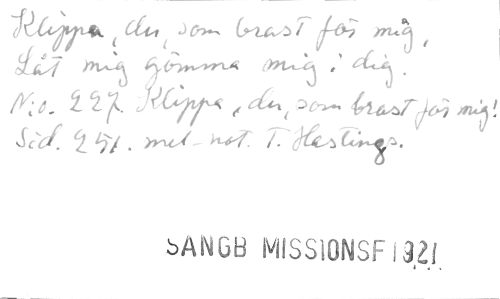 Klippa, du, som brast för mig,
Låt mig gömma mig i dig.
N:o. 227. Klippa, du, som brast för mig!
Sid. 251. mel-not. T. Hastings.
SANGB MISSIONSF 1921